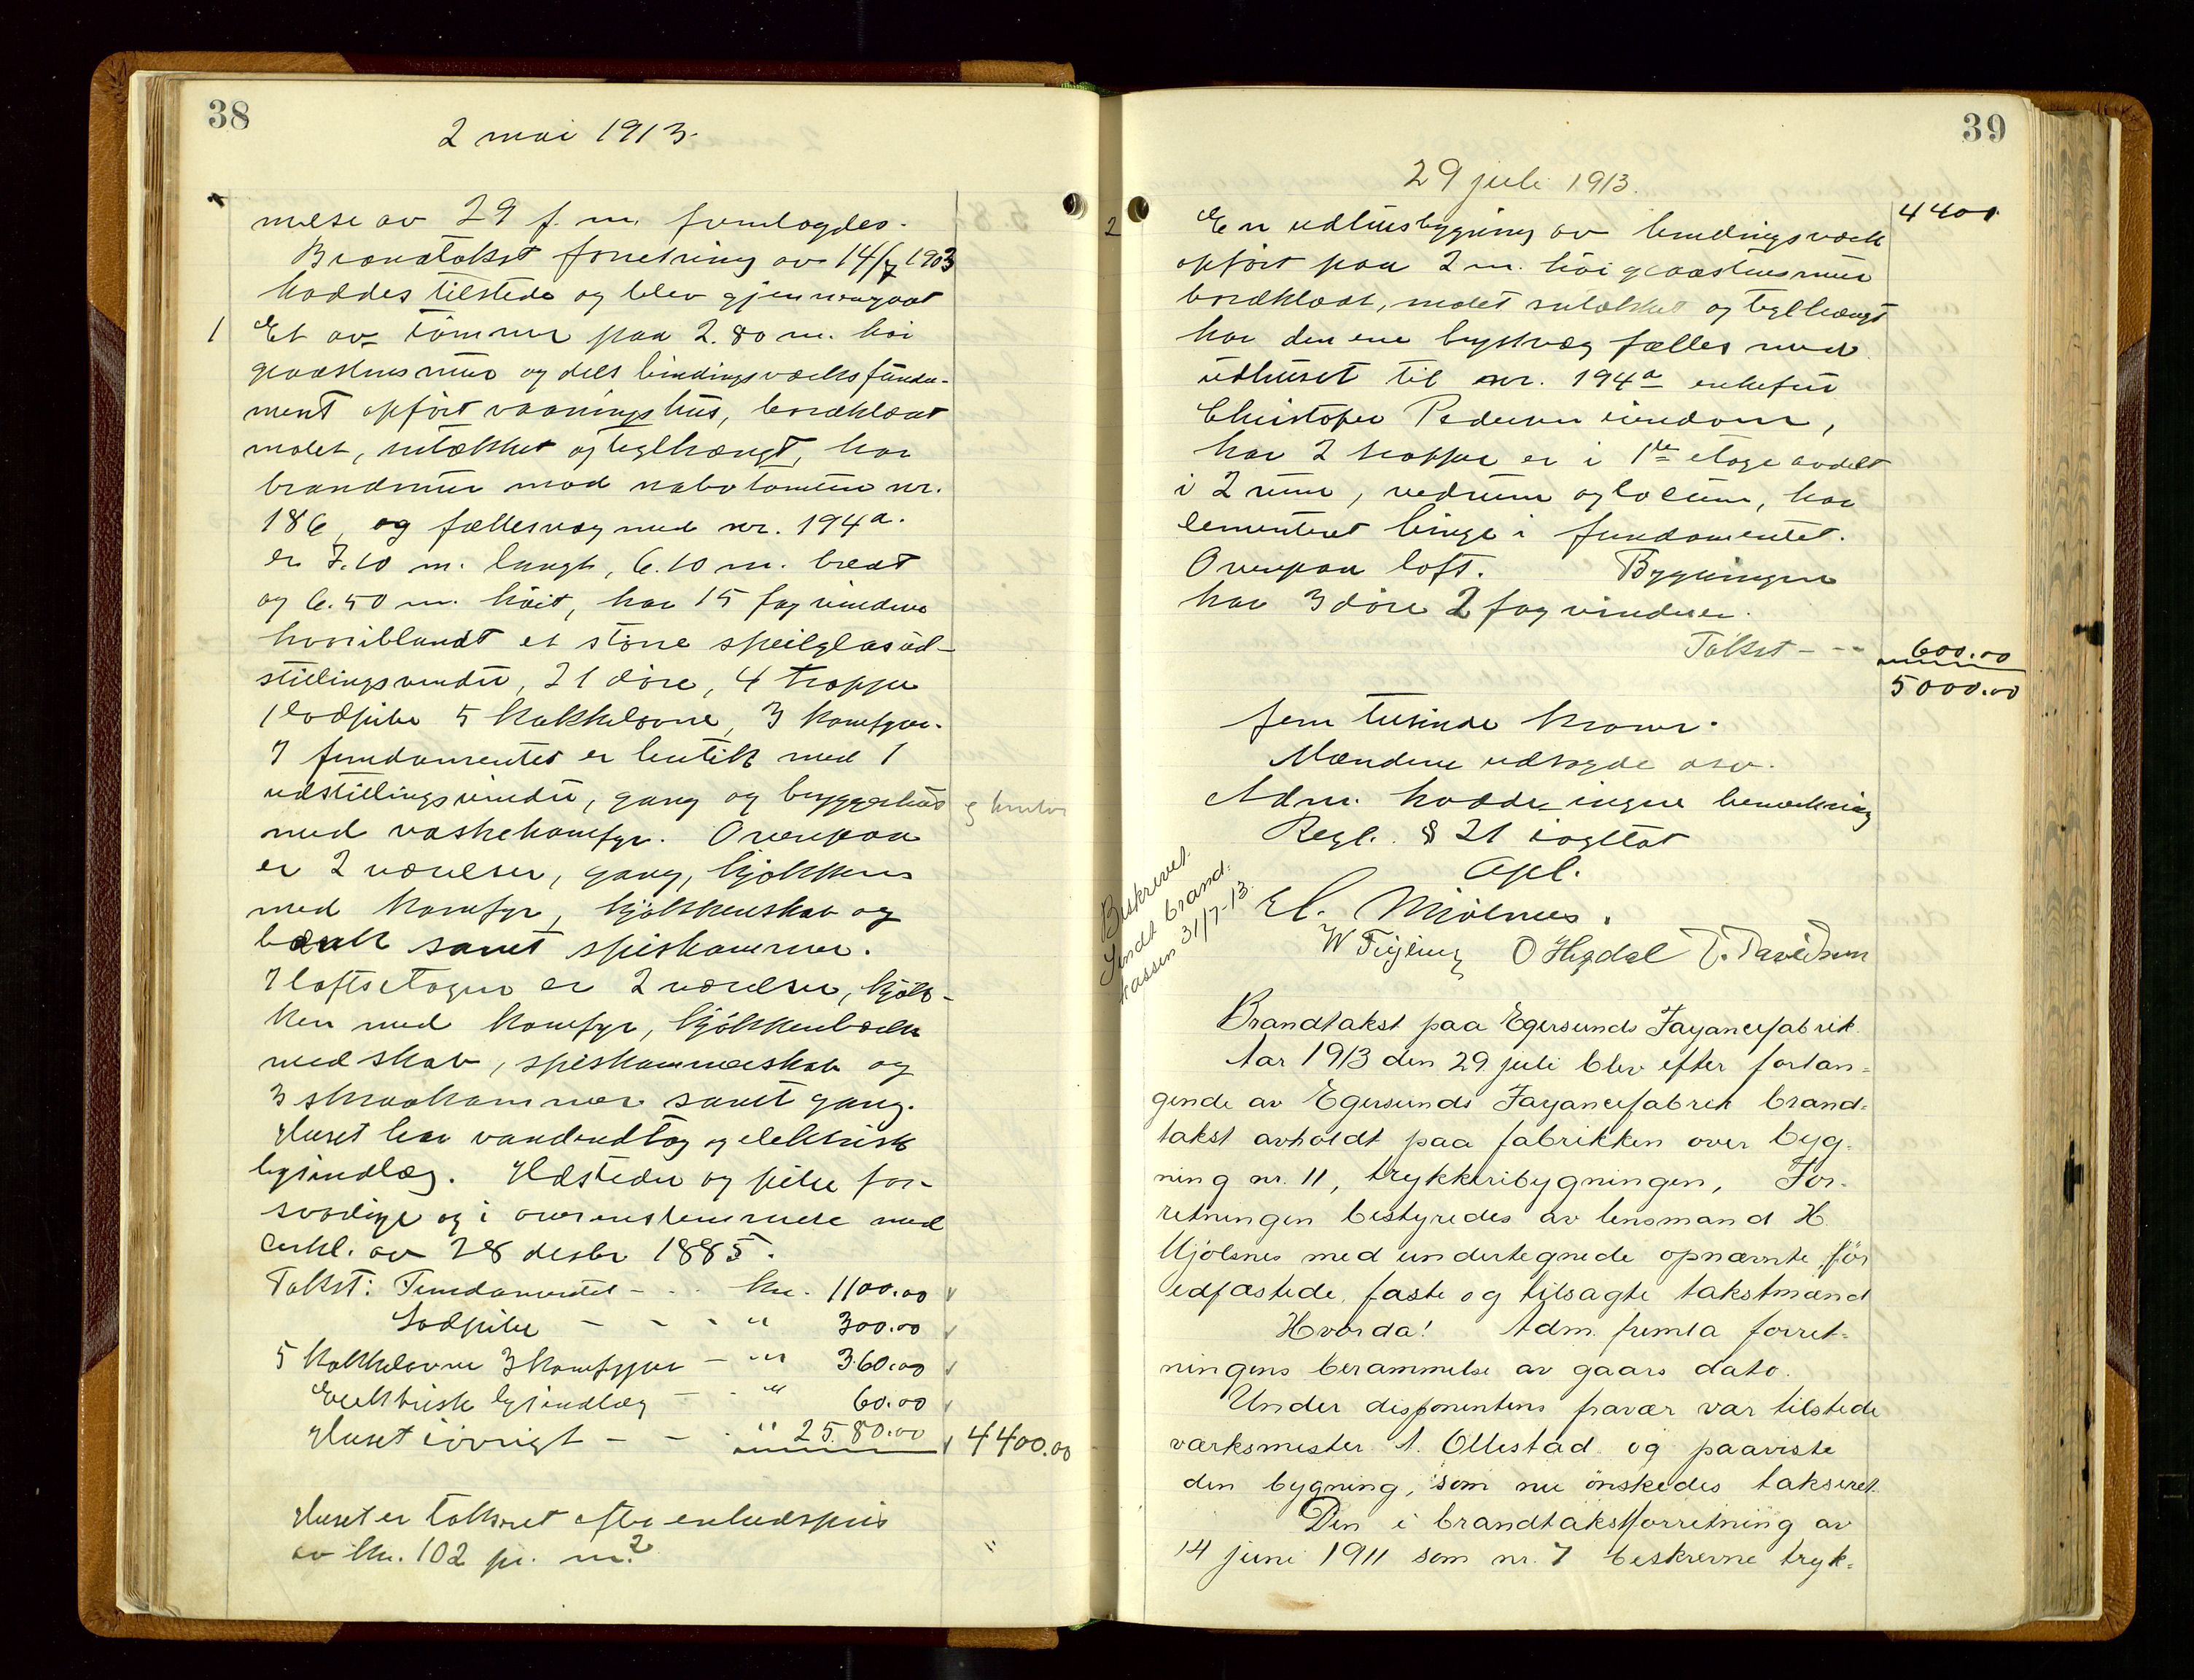 38
2 mai 1913.
melse av 29 f. m. fremlagdes.
Brandtakst forretning av 14/7 1903
haddes tilstede og blev gjennemgaat
1 Et av tömmer paa 2.80 m. höi
graastensmur og dels bindingsværks funda-
ment opfört vaaningshus, bordklædt
malet, sutækket og teglhængt, har
brandmur mod nabotomten nr.
186, og fællesvæg med nr. 194a.
er 7.10 m. langt, 6.10 m. bredt
og 6.50 m. höit, har 15 fag vinduer
hvoriblandt et större speilglasud-
stillingsvindu, 21 döre, 4 trapper
1 lodpibe 5 kakkelovne, 3 komfyrer.
I fundamentet er butik med 1
udstillingsvindu, gang og bryggerhus
med vaskekomfyr. Ovenpaa
er 2 værelser, gang, kjökken
med komfyr, kjökkenskab og
bænk samt spiskammer.
I loftsetagen er 2 værelser, kjök-
ken med komfyr, kjökkenbænk
med skab, spiskammerskab og
3 skraakammer samt gang.
Huset har vandindlæg og elektrisk
lysindlæg. Ildsteder og piber for-
svarlige og i overensstemmelse med
cirkl. av 28 desbr 1885.
Takst: Fundamentet - - - kr. 1100.00
Lodpibe - - - " 300.00
5 kakkelovne 3 komfyrer - " 360.00
Elektrisk lysindlæg - - " 60.00
Huset iövrigt - - " 2580.00 4400.00
Huset er takseret efter enhedspris
av kr. 102 pr. m2
39
29 juli 1913.
4400
2 En udhusbygning av bindingsværk
opfört paa 2 m. höi graastensmur
bordklædt, malet sutækket og teglhængt
har den ene langvæg fælles med
udhuset til nr. 194a enkefru
Christofer Pedersen eiendom,
har 2 trapper er i 1ste etage avdelt
i 2 rum, vedrum og locum, har
cementeret binge i fundamentet.
Ovenpaa loft. Bygningen
har 3 döre 2 fag vinduer.
Takst - - - 600.00
5000.00
fem tusinde kroner.
Mændene udsagde osv.
Adm. hadde ingen bemerkning
Regl. § 21 iagttat
Opl.
Beskrevet.
Sendt brand-
kassen 31/7-13.
H. Mjölsnes.
O Hegdal J. Davidsen
Brandtakst paa Egersunds Fayancefabrik
Aar 1913 den 29 juli blev efter forlan-
gende av Egersunds Fayancefabrik brand-
takst avholdt paa fabrikken over byg-
ning nr. 11, trykkeribygningen, For-
retningen bestyredes av lensmand H.
Mjölsnes med undertegnede opnævnte, för
edfæstede, faste og tilsagte takstmænd
Hvorda! Adm. fremla forret-
ningens berammelse av gaars dato.
Under disponentens fravær var tilstede
værksmester A. Ollestad og paaviste
den bygning, som nu önskedes takseret.
Den i brandtakstforretning av
14 juni 1911 som nr. 7 beskrevne tryk-